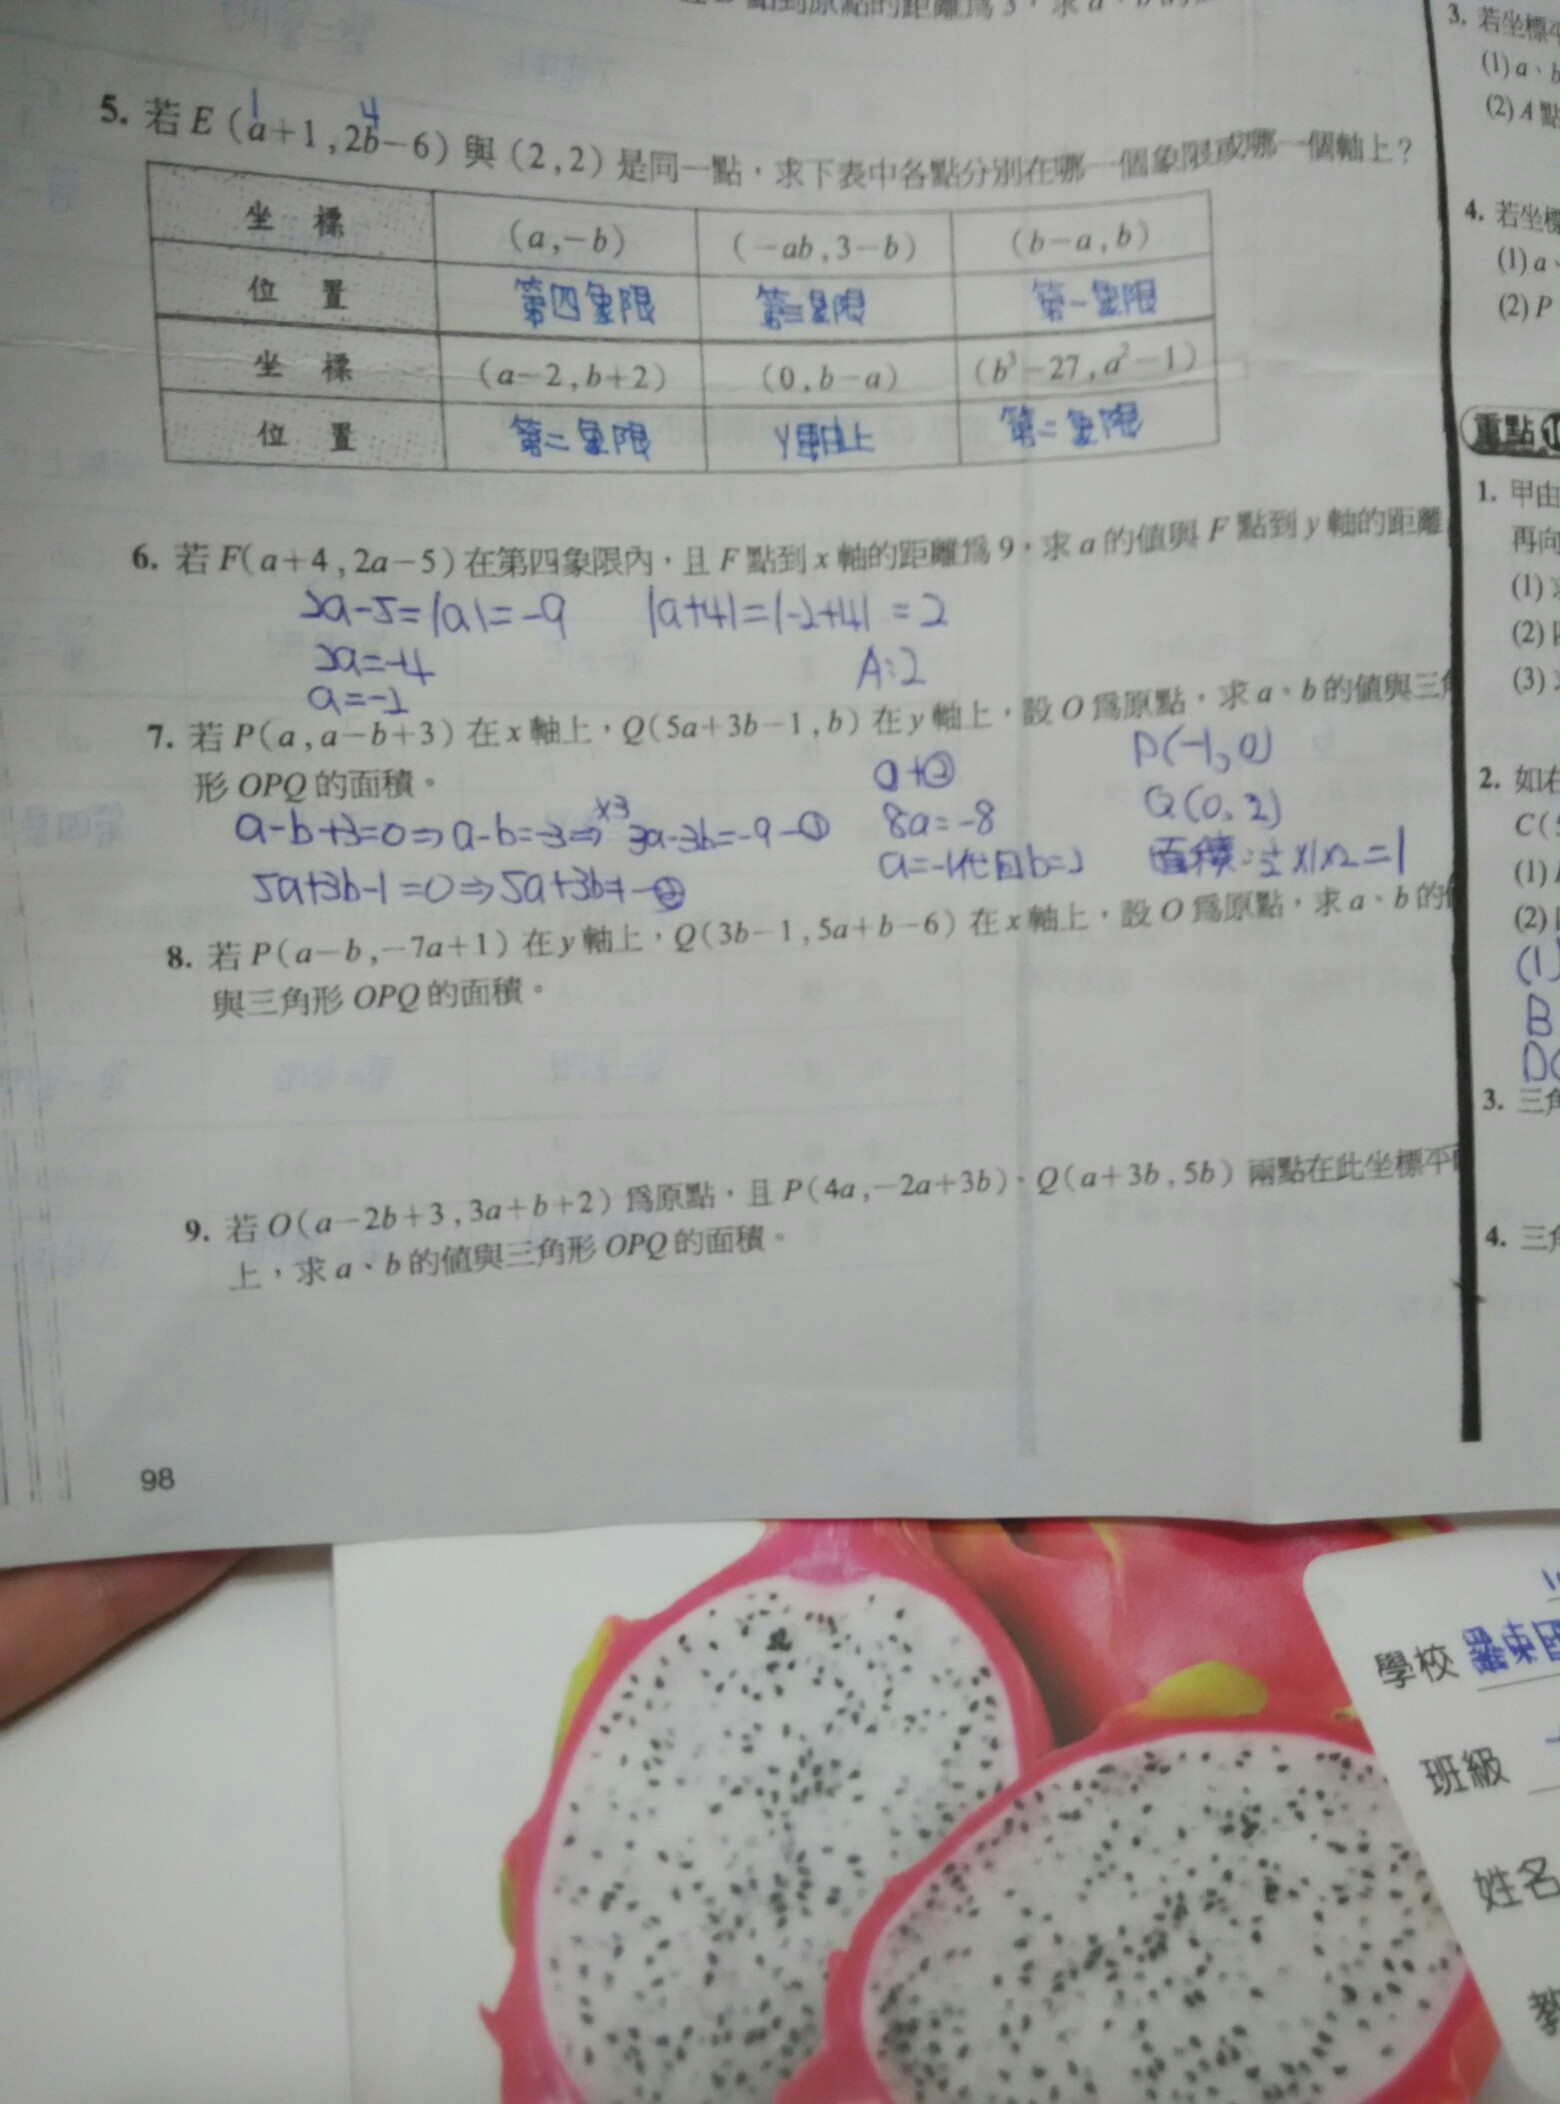 5. 若E(a+1,2b-6)與(2,2)是同一點，求下表中各點分別在哪一個象限或哪一個軸上？
1 4
坐標 (a,-b) (-ab,3-b) (b-a,b)
位置 第四象限 第三象限 第一象限
坐標 (a-2,b+2) (0,b-a) (b³-27,a²-1)
位置 第二象限 y軸上 第二象限
6. 若F(a+4,2a-5)在第四象限內，且F點到x軸的距離為9，求a的值與F點到y軸的距離
2a-5=|a|=-9 |a+4|=|-2+4|=2
2a=-4 A:2
a=-2
7. 若P(a,a-b+3)在x軸上，Q(5a+3b-1,b)在y軸上，設O為原點，求a、b的值與三角
形OPQ的面積。
P(-1,0)
Q(0,2)
a-b+3=0⇒a-b=-3⇒×3 3a-3b=-9-① 8a=-8
5a+3b-1=0⇒5a+3b=1-② a=-1代回b=2 面積:½×1×2=1
8. 若P(a-b,-7a+1)在y軸上，Q(3b-1,5a+b-6)在x軸上，設O為原點，求a、b的
與三角形OPQ的面積。
9. 若O(a-2b+3,3a+b+2)為原點，且P(4a,-2a+3b)、Q(a+3b,5b)兩點在此坐標平
上，求a、b的值與三角形OPQ的面積。
98
3. 若坐標
(1)a、b
(2)A點
4. 若坐標
(1)a、
(2)P
重點
1. 甲由
再向
(1)
(2)
(3)
2. 如右
C(
(1)
(2)
(1)
B
D(
3. 三角
4. 三角
學校 羅東國
班級
姓名